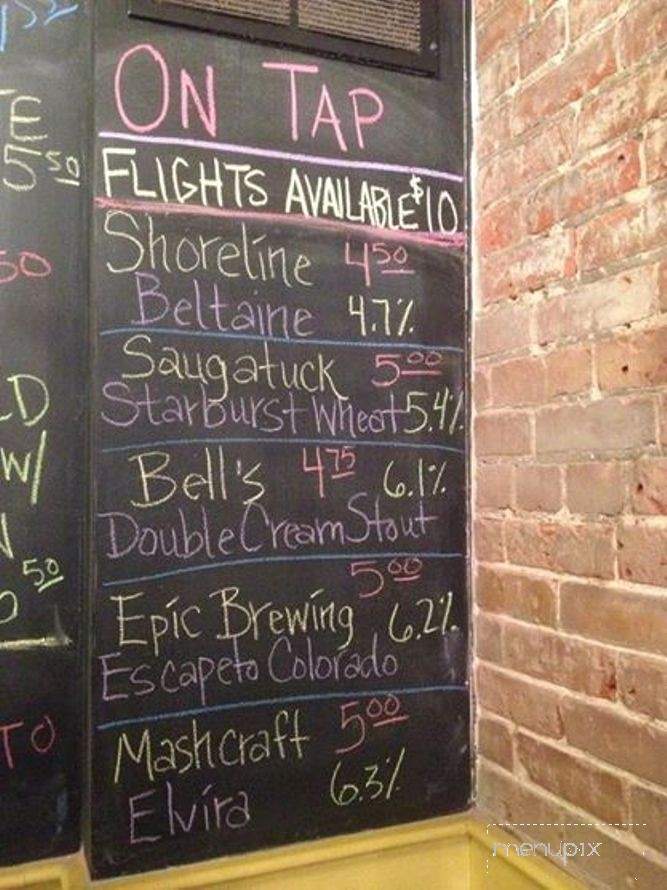 ON TAP
FLIGHTS AVAILABLE $10
Shoreline 4 50
Beltaine 4.7%
Saugatuck 5 00
Starburst Wheat 5.4%
Bell's 4 75 6.1%
Double Cream Stout
5 00
Epic Brewing 6.2%
Escape to Colorado
Mashcraft 5 00
Elvira 6.3%
E
5 50
50
LD
W/
N
50
TO
menupix